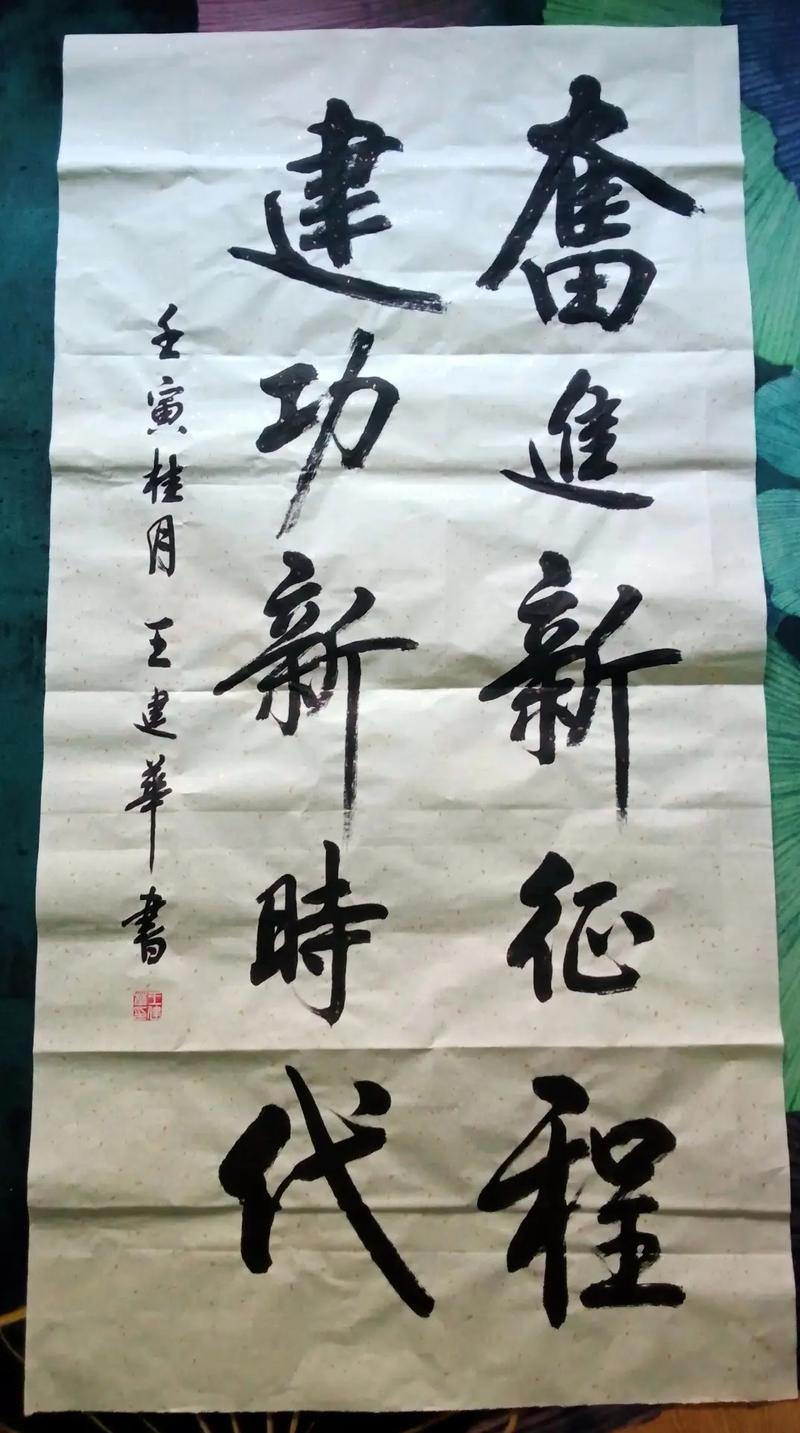 奮進新征程
建功新時代
壬寅桂月 王建華書